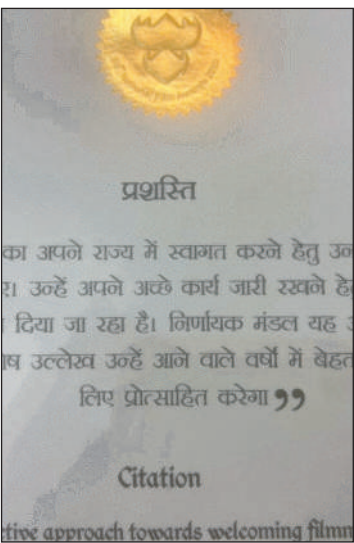 प्रशस्ति
का अपने राज्य में स्वागत करने हेतु
उन्हें अपने अच्छे कार्य जारी रखने
दिया जा रहा है। निर्णायक मंडल यह
उल्लेख उन्हें आने वाले वर्षों में
लिए प्रोत्साहित करेगा ❞
Citation
approach towards welcoming